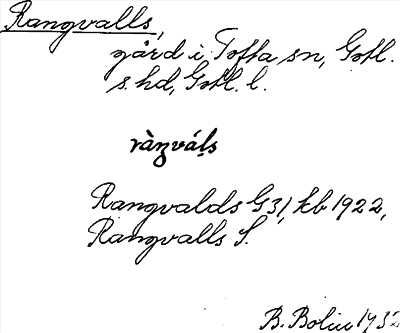 Rangvalls,
gård i Tofta sn, Gotl.
s. hd, Gotl. l.
ràŋváḷs
Rangvalds G31, kb 1922,
Rangvalls S.
B. Bolin 1932